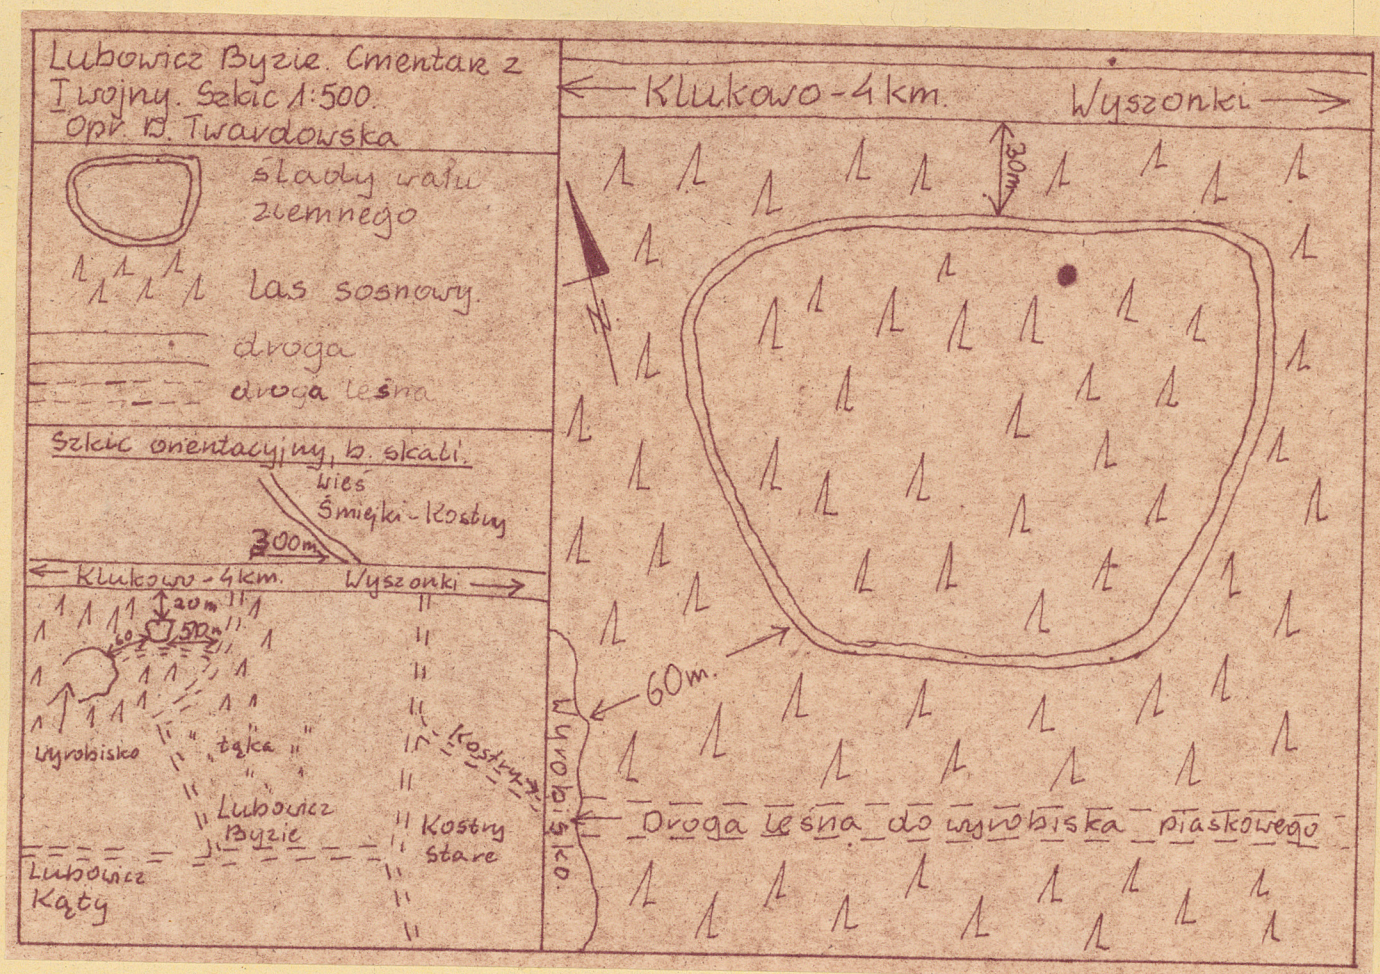 Lubowicz Byzie. Cmentarz z
I wojny. Szkic 1:500.
Opr. D. Twardowska
ślady wału
ziemnego
las sosnowy.
droga
droga leśna
Szkic orientacyjny, b. skali.
wieś
Śmiejki-Kostry
300m
Klukowo-4km. Wyszonki
20m
50m
60
wyrobisko
łąka
Lubowicz
Byzie
Kostry
Kostry
Stare
Lubowicz
Kąty
Klukowo-4km. Wyszonki
30m
N
60m.
Wyrobisko.
Droga leśna do wyrobiska piaskowego